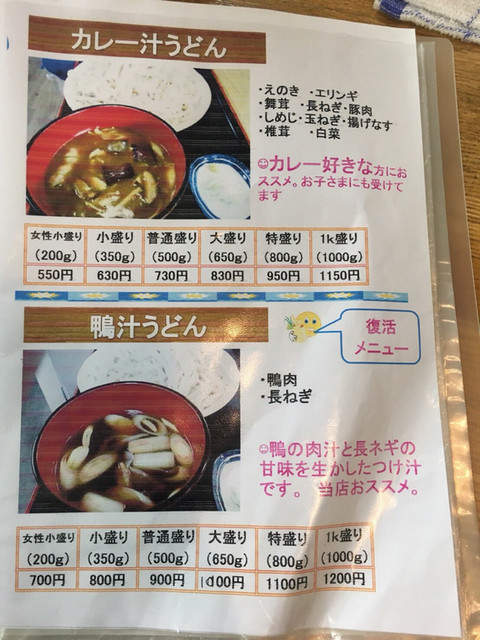 カレー汁うどん
・えのき ・エリンギ
・舞茸 ・長ねぎ・豚肉
・しめじ・玉ねぎ・揚げなす
・椎茸 ・白菜
カレー好きな方にお
ススメ。お子さまにも受けて
ます
女性小盛り 小盛り 普通盛り 大盛り 特盛り 1k盛り
(200g) (350g) (500g) (650g) (800g) (1000g)
550円 630円 730円 830円 950円 1150円
鴨汁うどん
復活
メニュー
・鴨肉
・長ねぎ
鴨の肉汁と長ネギの
甘味を生かしたつけ汁
です。 当店おススメ。
女性小盛り 小盛り 普通盛り 大盛り 特盛り 1k盛り
(200g) (350g) (500g) (650g) (800g) (1000g)
700円 800円 900円 1000円 1100円 1200円